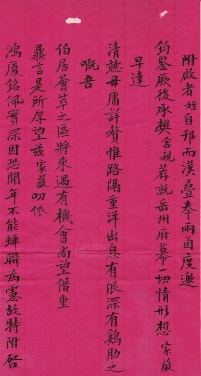 附啟者姪自邗而漢疊奉兩函度邀
鈞鑒厥後承樊舍親荐就岳州府幕一切情形想家嚴
早達
清聽毋庸詳贅惟路隔重洋出息有限深有鷄肋之
嘅吾
伯居薈萃之區將來遇有機會尚望借重
鼎言是所厚望茲家嚴叨依
鴻廈銘佩實深因恭開年不能蟬聯為憲故特附啓